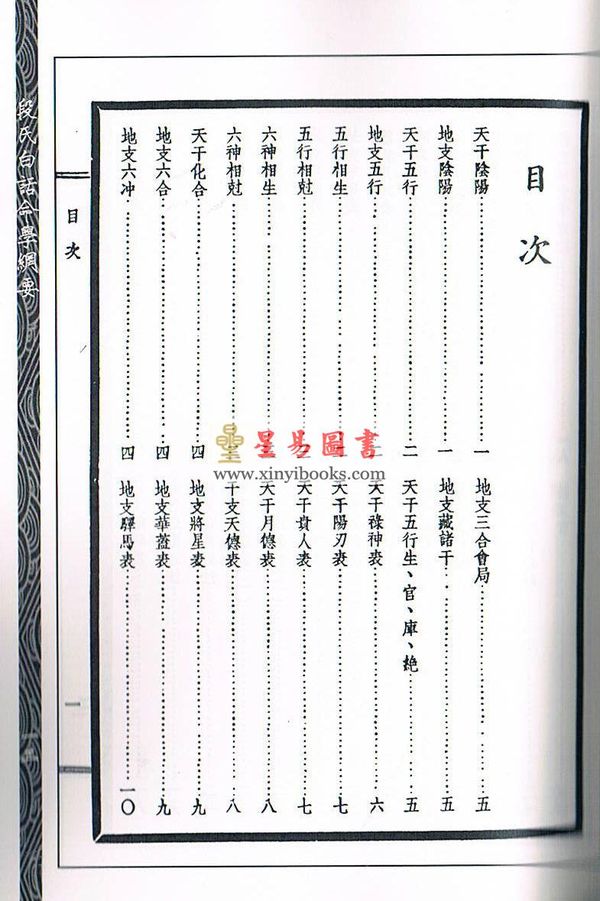 目次
天干陰陽 一
地支陰陽 一
天干五行 二
地支五行
五行相生
五行相尅
六神相生
六神相尅
天干化合 四
地支六合 四
地支六冲 四
地支三合會局 五
地支藏諸干 五
天干五行生、官、庫、絶 五
天干祿神表 六
天干陽刃表 七
天干貴人表 七
天干月德表 八
干支天德表 八
地支將星表 九
地支華蓋表 九
地支驛馬表 一〇
目次
一
段氏白話命學綱要
星易圖書
www.xinyibooks.com